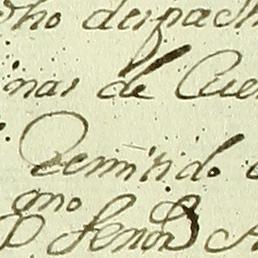 ho despach
inas de Cue
Remitido e
mo
Señor A